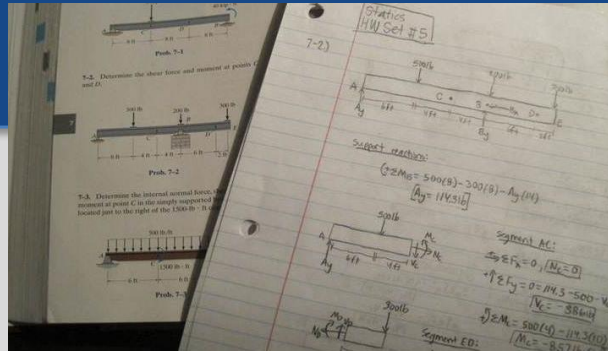 Prob. 7-1
7-2. Determine the shear force and moment at points C
and D.
7
6 ft
4 ft
4 ft
6 ft
2 ft
Prob. 7-2
7-3. Determine the internal normal force,
moment at point C in the simply supported
located just to the right of the 1500-lb · ft
500 lb/ft
1500 lb · ft
6 ft
6 ft
Prob. 7-3
Statics
HW Set #5
7-2)
500lb
A
C
B
D
E
Ay
By
6ft
Support reactions:
ΣMB = 500(8) - 300(8) - Ay(14)
Ay = 114.3lb
500lb
A
Mc
Nc
Vc
Ay
6ft
4ft
Segment AC:
ΣFx = 0, Nc = 0
ΣFy = 0 = 114.3 - 500 - V
Vc = -386lb
ΣMc = 500(4) - 114.3(10)
Mc = -857lb
300lb
Segment ED: